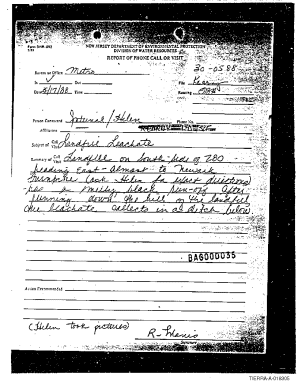 Form DWR-
NEW JERSEY DEPARTMENT OF ENVIRONMENTAL PROTECTION
DIVISION OF WATER RESOURCES
REPORT OF PHONE CALL OR VISIT
Bureau or Office Metro
30-05 88
In Out File
Date 5/17/88 Time
Person Contacted / Helen Phone No.
Affiliation
Subject of Call Landfill Leachate
Summary of Call Landfills on South side of 280
heading East - Almost to Newark
Turnpike (ask Helen for exact directions
has a milky black run-off after
running down the hill on the landfill
the leachate collects in a ditch below
BAG000035
Action Recommended
(Helen took pictures)
Signature
TIERRA-A-018305